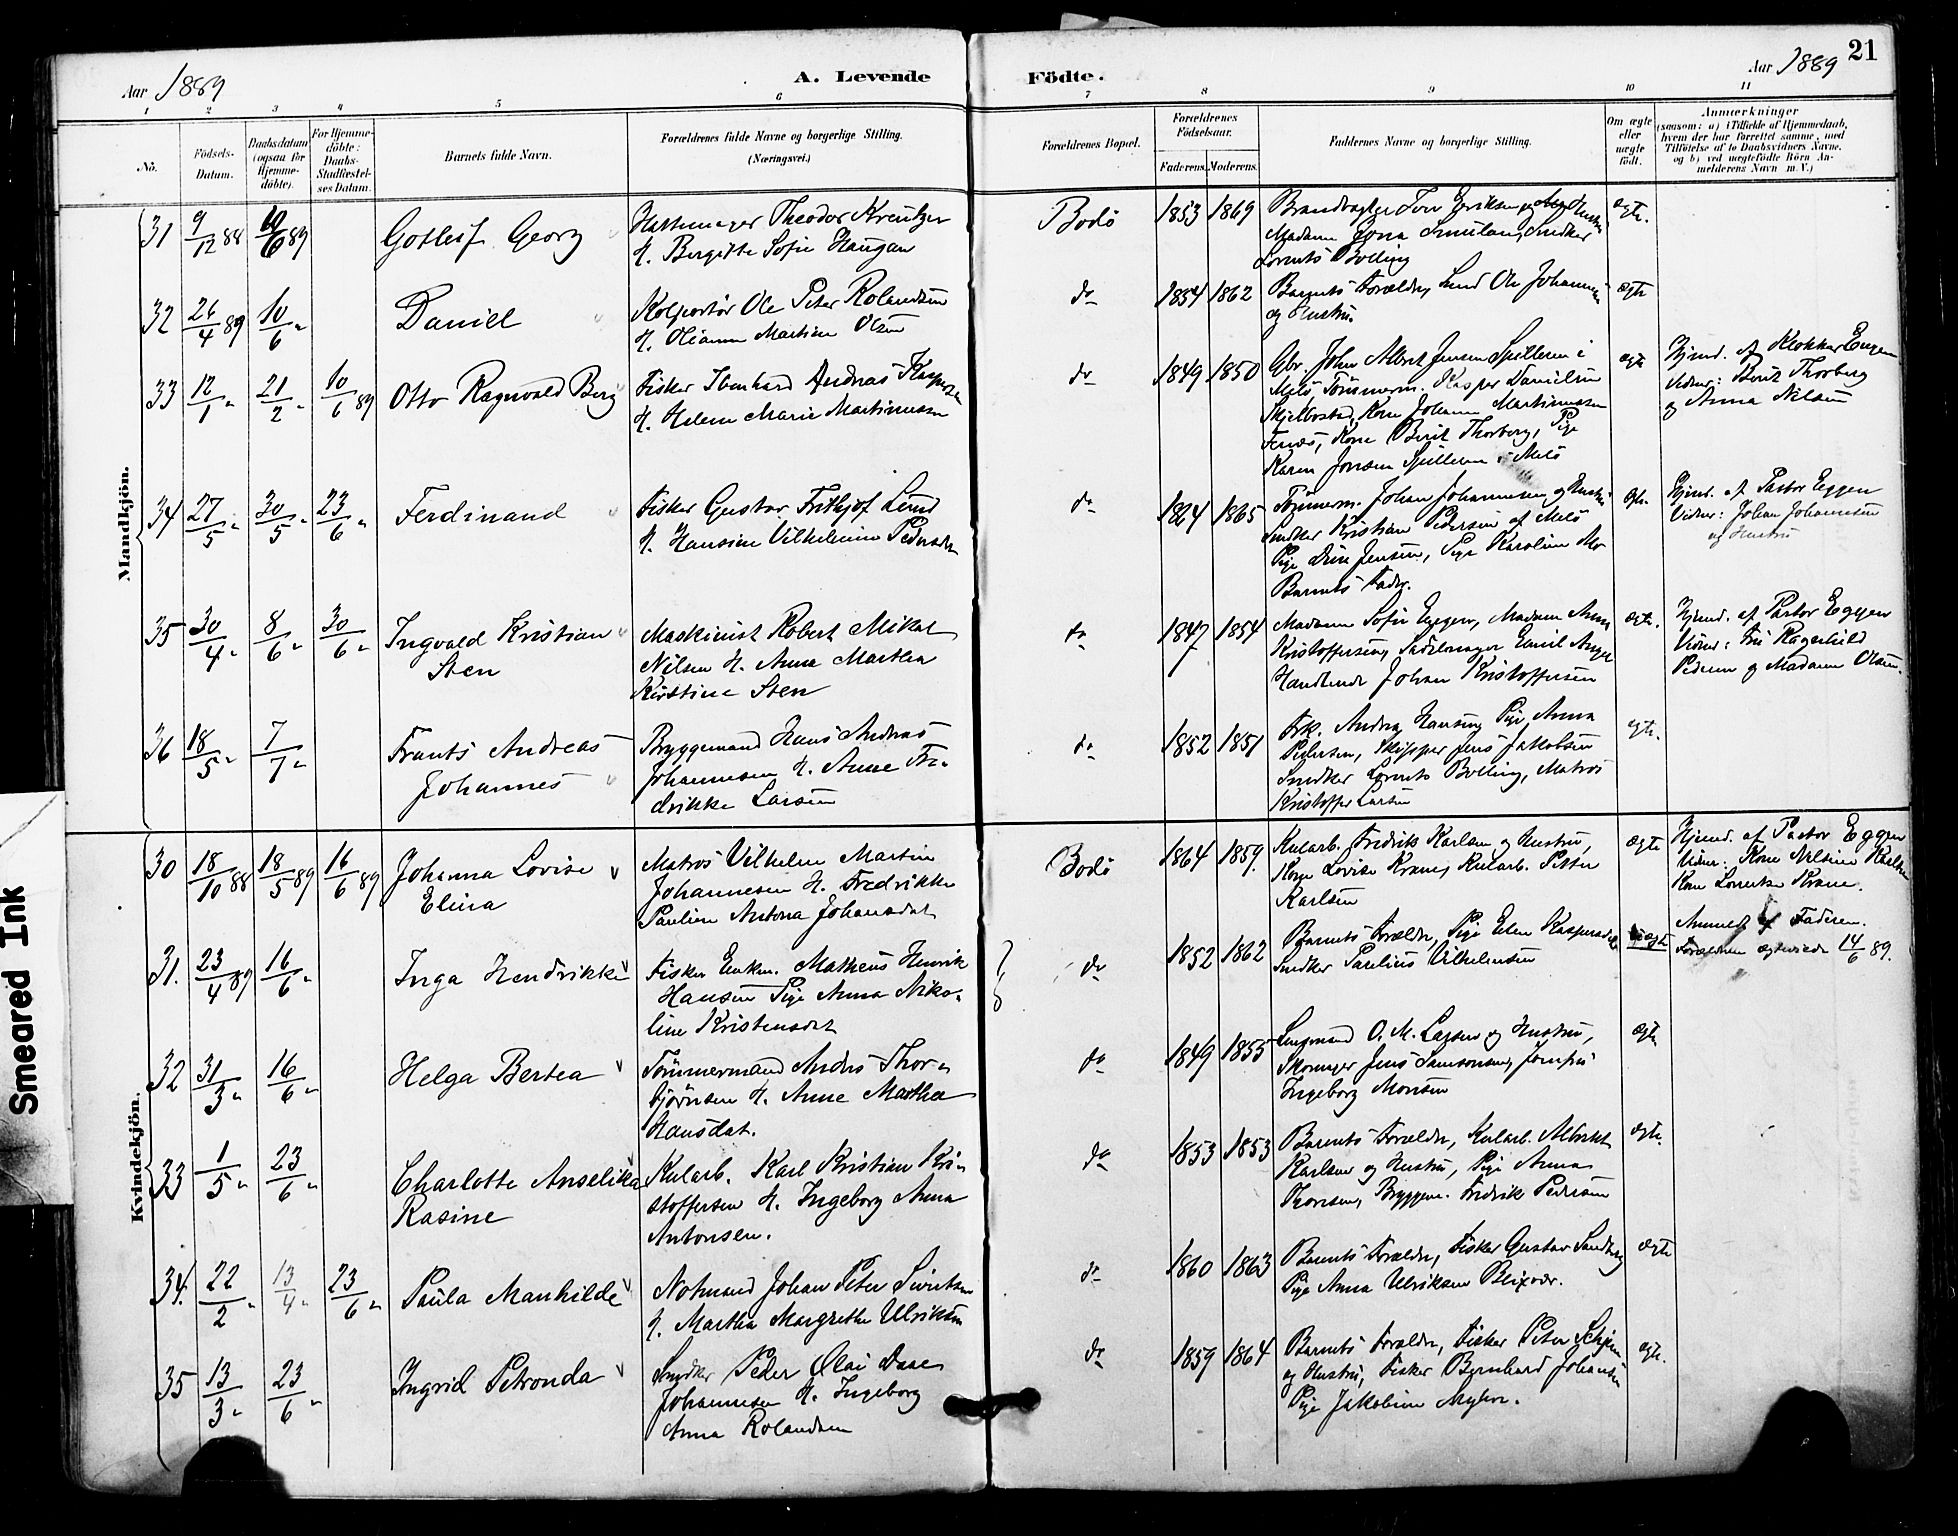 21
Aar 1889
A. Levende Födte.
Aar 1889
1 2 3 4 5 6 7 8 9 10 11
No.
Födsels-
Datum.
Daabsdatum
(ogsaa for
Hjemme-
döbte).
For Hjemme-
döbte:
Daabs-
Stadfæstel-
ses Datum.
Barnets fulde Navn.
Forældrenes fulde Navne og borgerlige Stilling.
(Næringsvei.)
Forældrenes Bopæl.
Forældrenes
Födselsaar.
Faderens. Moderens.
Faddernes Navne og borgerlige Stilling.
Om ægte
eller
uægte
født.
Anmærkninger
(saasom: a) i Tilfælde af Hjemmedaab,
hvem der har forrettet samme, med
Tilföielse af to Daabsvidners Navne,
og b) ved uægtefödte Börn An-
melderens Navn m. V.)
Mandkjön.
31 9/12 88 10/6 89 Gotleif Georg
Hattemager Theodor Kreutzer
H. Bergitte Sofie Haugan
Bodö 1853 1869
Madame Smedker
Lorents Bolling
ægte.
32 26/4 89 10/6 " Daniel
Kolportör Ole Peter Rolandsen
H. Olianna Martine Olsen
do 1854 1862
Barnets Forældre, Ole Johannesen
og Hustru.
ægte
33 12/1 " 21/2 " 10/6 89 Otto Ragnvald Berg
Fisker Andreas Kaspersen
H. Helene Marie Martinussen
do 1849 1850
Gbr. Johan Albert Jensen Spilderen i
Melö, Tömmerm. Kasper Danielsen
Kone Johanna Martinussen
Kone Berit Thorberg, Pige
Karen Jensen Spilderen i Melö
ægte
Hjemd. af Klokker Eugen
Vidner: Berit Thorberg
og Anna Nilsen
34 27/5 " 30/5 " 23/6 " Ferdinand
Fisker Gustav Frithjof Lund
H. Hansine Vilhelmine Pedersdt
do 1864 1865
Tömmerm. Johan Johannesen og Hustru
Smedker Kristian Pedersen af Melö
Pige Jensen, Pige Karoline
Barnets Fader.
ægte.
Hjemd. af Pastor Eggen
Vidner: Johan Johannesen
og Hustru
35 30/4 " 8/6 " 30/6 " Ingvald Kristian
Sten
Maskinist Robert Mikal
Nilsen H. Anna Martha
Kirstine Sten
do 1847 1854
Madame Sofie Eggen, Madam Anna
Kristoffersen, Sadelmager Emil
Handlende Johan Kristoffersen
ægte.
Hjemd. af Pastor Eggen
Vidner: Fru Ragnhild
Pedersen og Madame Olsen.
36 18/5 " 7/7 Frants Andreas
Johannes
Bryggemand Hans Andreas
Johannesen H. Anne Fre-
drikke Larsen
do 1852 1851
Frk. Andrea Hansen, Pige Anna
Pedersen, Skipper Jens Jakobsen
Smedker Lorents Bolling, Matros
Kristoffer Larsen
ægte.
Kvindekjön.
30 18/10 88 18/5 89 16/6 89 Johanna Lovise
Elina
Matros Vilhelm Martin
Johannesen H. Fredrikke
Pauline Antona Johansdat
Bodö 1864 1859.
Kularb. Fredrik Karlsen og Hustru,
Kone Lovise Krane, Kularb. Petter
Karlsen
ægte
Hjemd. af Pastor Eggen
Vidner: Kone Karlsen
Kone Krane.
31. 23/4 89 16/6 " Inga Hendrikke
Fisker Enkm. Matheus Henrik
Hansen Pige Anna Niko-
line Kristensdat
do 1852 1862
Barnets Forældre, Pige Elen Kaspersdt
Smedker Paulius Vilhelmsen
uægte
Anmeldt af Faderen.
Forældrene ægteviede 14/6 89.
32 31/3 " 16/6 " Helga Bertea
Tömmermand Andreas Thor-
björnsen H. Anne Martha
Hansdat.
do 1849 1855
O. M. Larsen og Hustru,
Skomager Jens Samsonsen, Jomfru
Ingeborg Monsen
ægte
33 1/5 " 23/6 " Charlotte Anselika
Rasine
Kularb. Karl Kristian Kri-
stoffersen H. Ingeborg Anna
Antonsen.
do 1853 1853
Barnets Forældre, Kularb. Albrikt
Karlsen og Hustru, Pige Anna
Thoresen, Bryggem. Fredrik Pedersen
ægte.
34. 22/2 " 13/4 " 23/6 " Paula Manhilde
Notmand Johan Peter Sivertsen
H. Martha Margrethe Ulriksen
do 1860 1863
Barnets Forældre, Fisker Gustav Sandberg
Pige Anna Ulriksen Blixvær.
ægte
35 13/3 " 23/6 " Ingrid Petronda
Smedker Peder Olai Daae
Johannesen H. Ingeborg
Anna Rolandsen
do 1859 1864
Barnets Forældre, Fisker Peter
og Hustru, Fisker Bernhard Johansen
Pige Jakobine Myhre.
ægte.
Smeared Ink